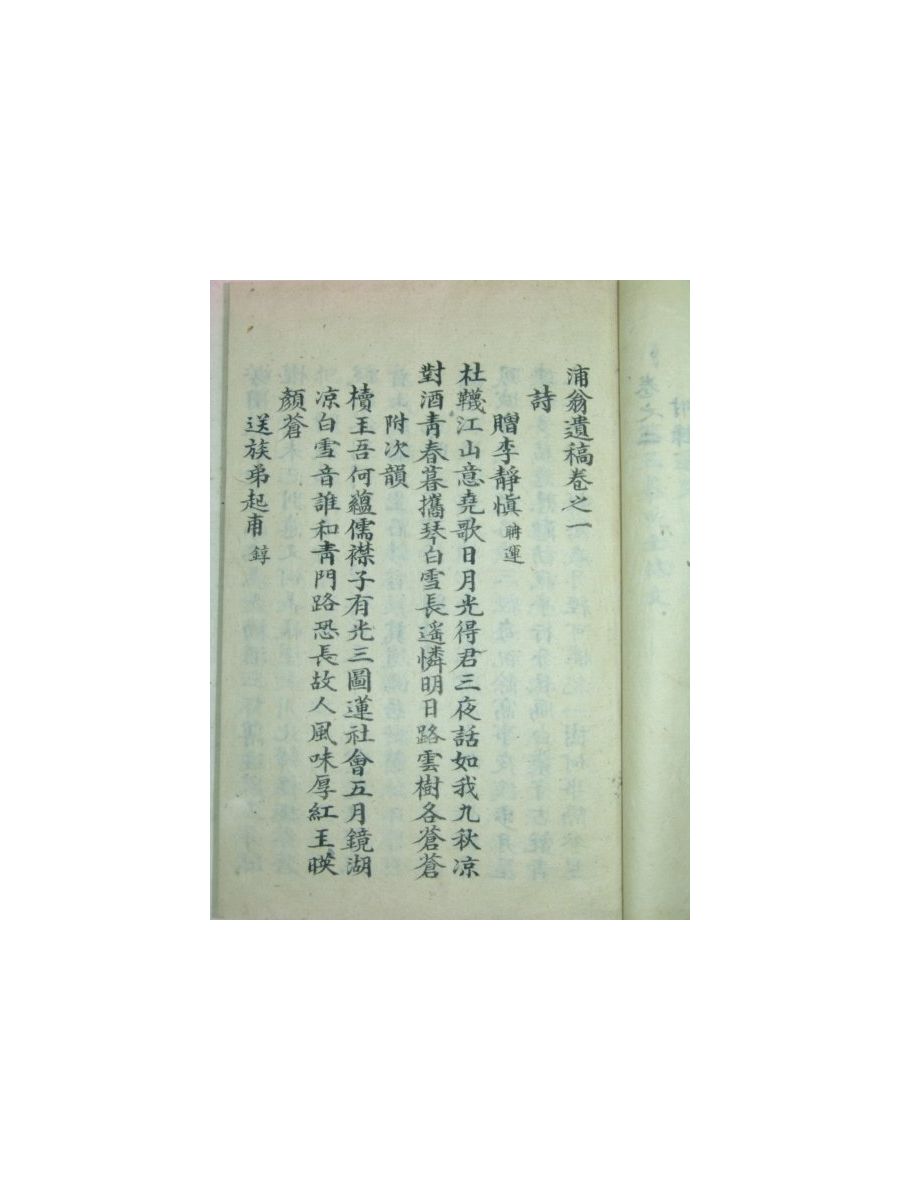 浦翁遺稿卷之一
詩
贈李靜愼 聃運
杜韈江山意堯歌日月光得君三夜話如我九秋凉
對酒靑春暮攜琴白雪長遥憐明日路雲樹各蒼蒼
附次韻
櫝玉吾何蘊儒襟子有光三圖蓮社會五月鏡湖
凉白雪音誰和靑門路恐長故人風味厚紅玉暎
顏蒼
送族弟起甫 錞